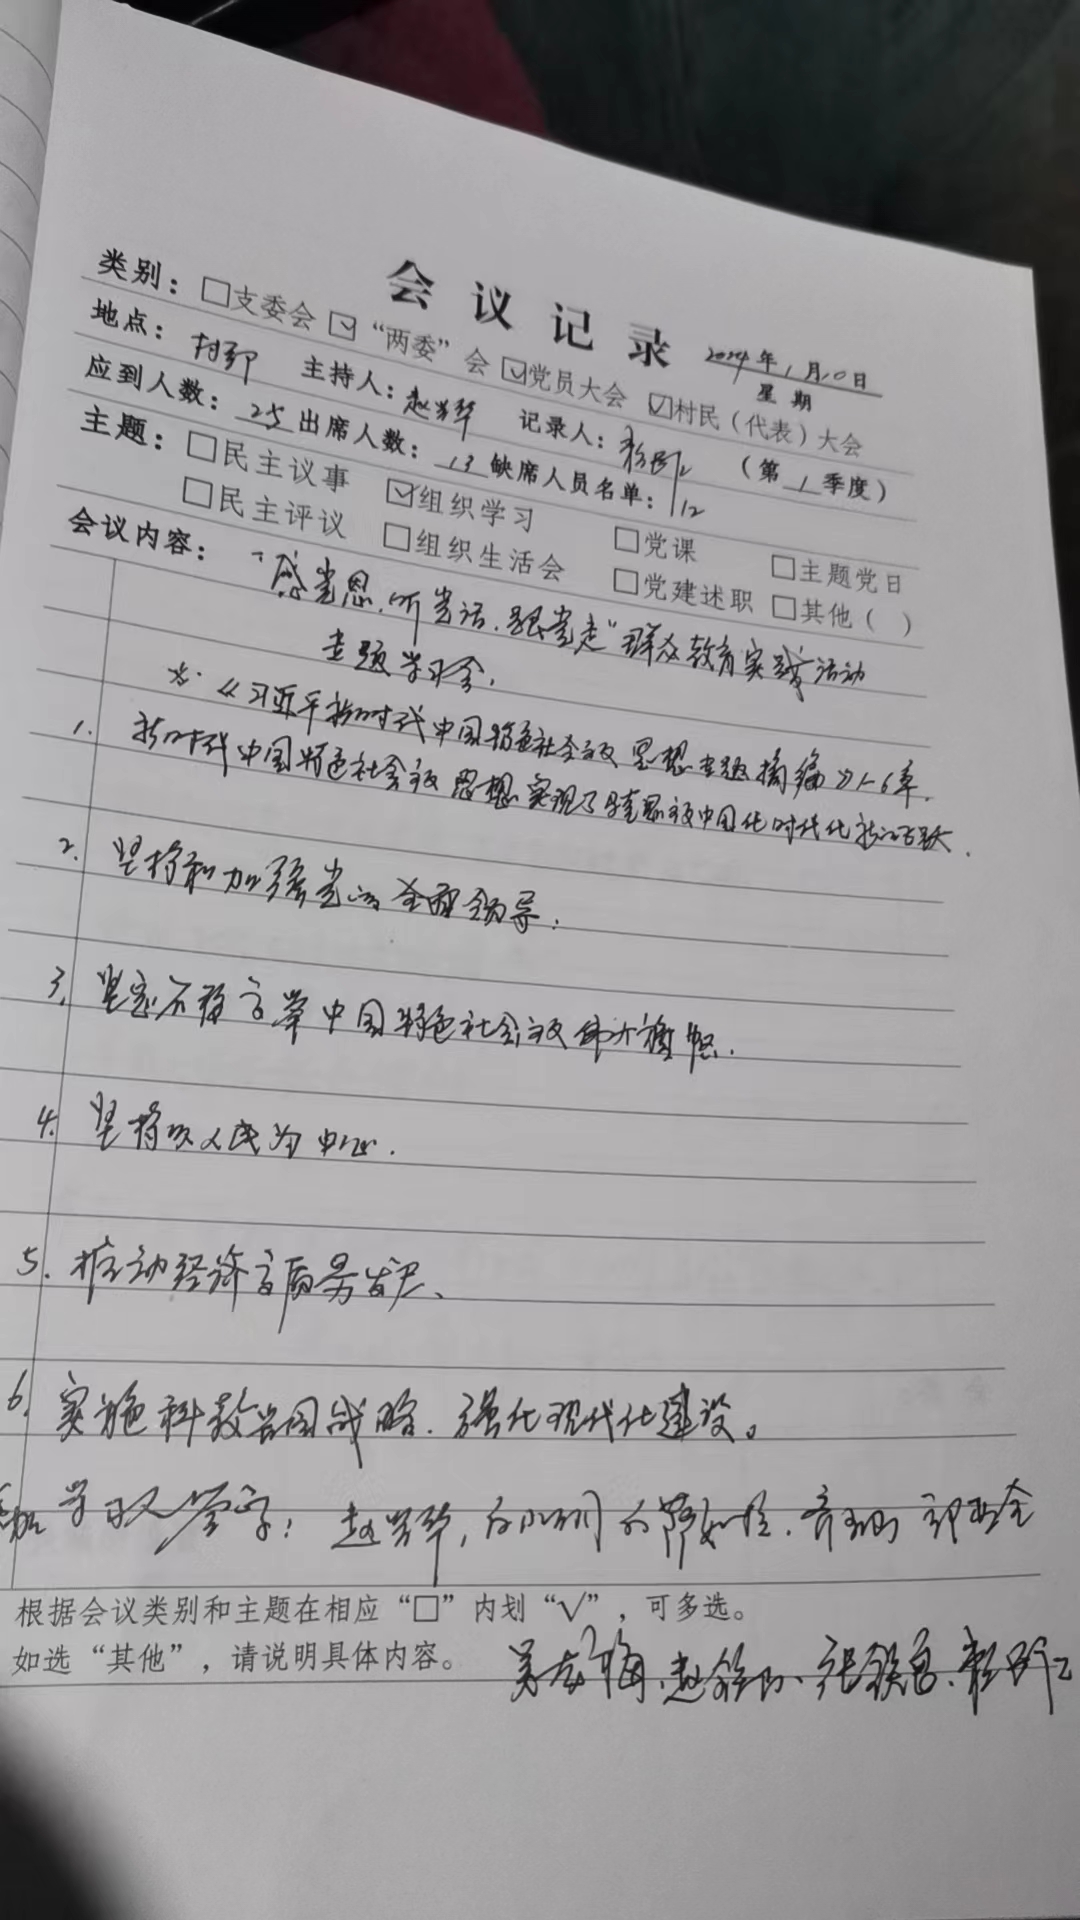 会议记录
2024年1月10日
星期
类别：□支委会 ☑“两委”会 ☑党员大会 ☑村民（代表）大会
地点：村部 主持人：赵学华 记录人： （第1季度）
应到人数：25 出席人数：13 缺席人员名单：12
主题：□民主议事 ☑组织学习 □党课 □主题党日
□民主评议 □组织生活会 □党建述职 □其他（ ）
会议内容：“感党恩、听党话、跟党走”群众教育实践活动
专题学习会.
《习近平新时代中国特色社会主义思想专题摘编》1-6章.
1. 新时代中国特色社会主义思想实现了马克思主义中国化时代化新的飞跃.
2. 坚持和加强党的全面领导.
3. 坚定不移高举中国特色社会主义伟大旗帜.
4. 坚持以人民为中心.
5. 推动经济高质量发展、
6. 实施科教兴国战略.强化现代化建设。
学习人签字：赵学华,
根据会议类别和主题在相应“□”内划“√”，可多选。
如选“其他”，请说明具体内容。